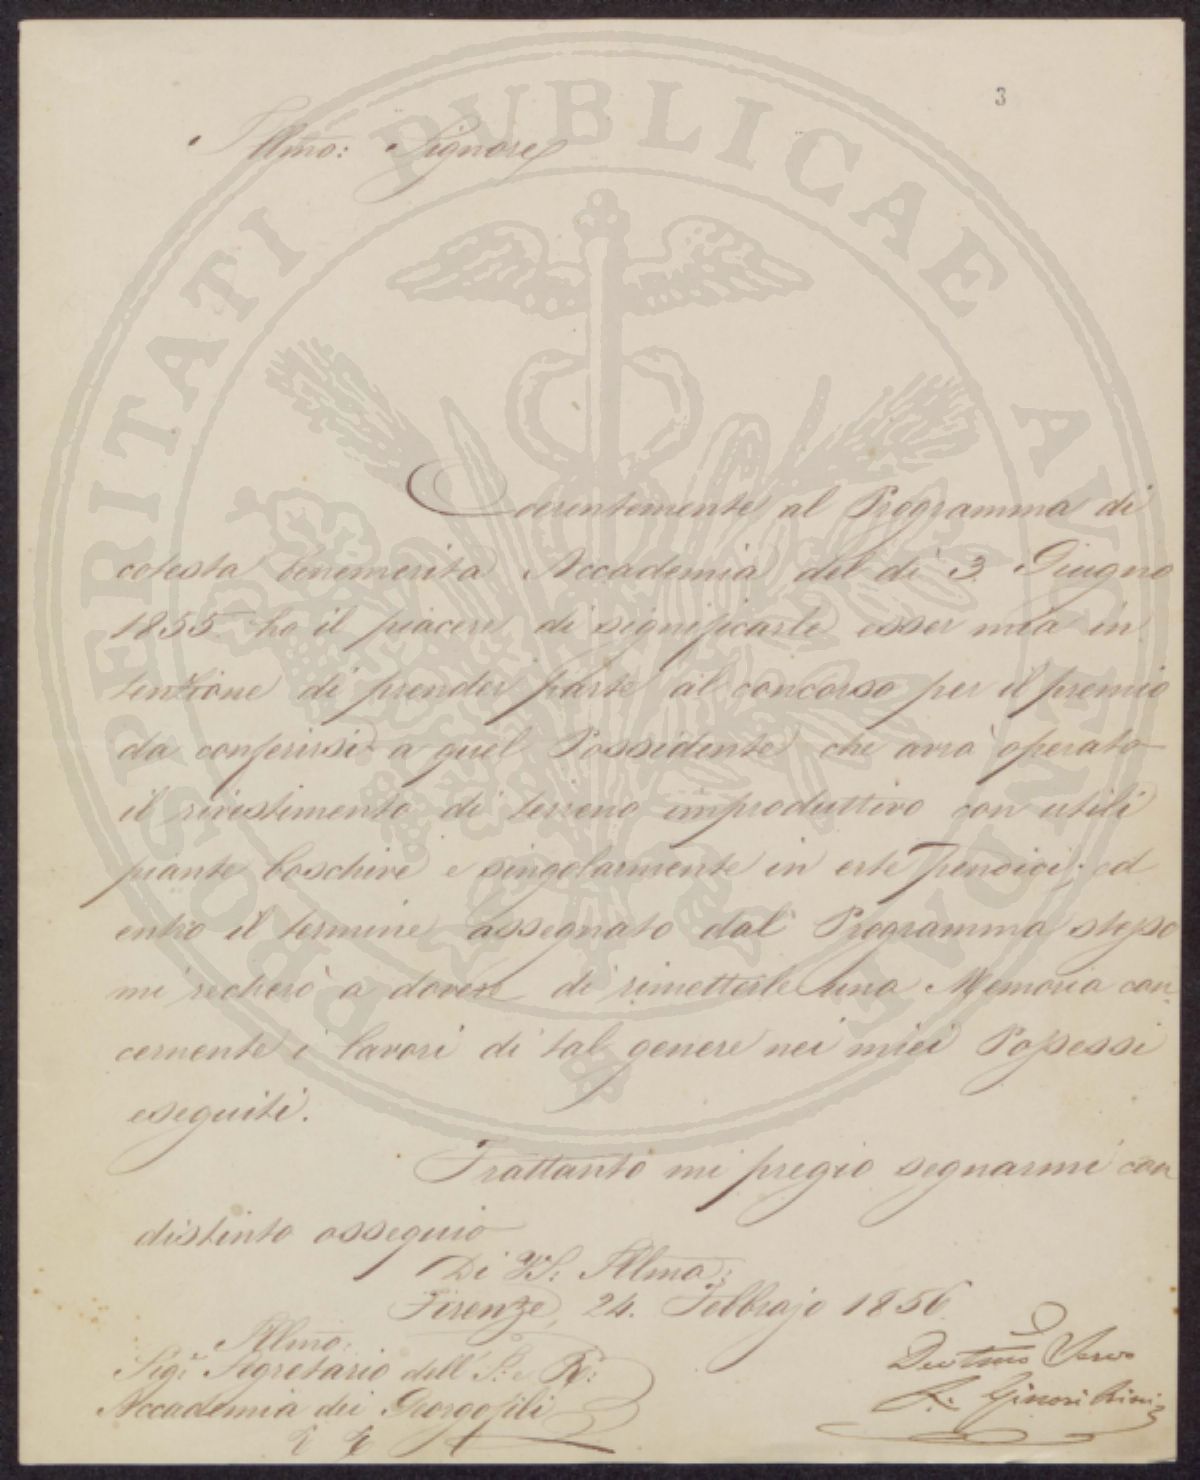 3
Illmo: Signore
Coerentemente al Programma di
cotesta benemerita Accademia del dì 3. Giugno
1855 ho il piacere di significarle esser mia in
tenzione di prender parte al concorso per il premio
da conferirsi a quel Possidente che avrà operato
il rivestimento di terreno improduttivo con utili
piante boschive e singolarmente in erte pendici; ed
entro il termine assegnato dal Programma stesso
mi recherò a dovere di rimetterle una Memoria con
cernente i lavori di tal genere nei miei Possessi
eseguiti.
Trattanto mi pregio segnarmi con
distinto ossequio
Di VS: Illma:
Firenze, 24. Febbrajo 1856.
Illmo:
Sigr: Segretario dell' I: e R:
Accademia dei Georgofili
Devtmo Servo
Ginori
PROSPERITATI PUBLICAE AUGENDAE